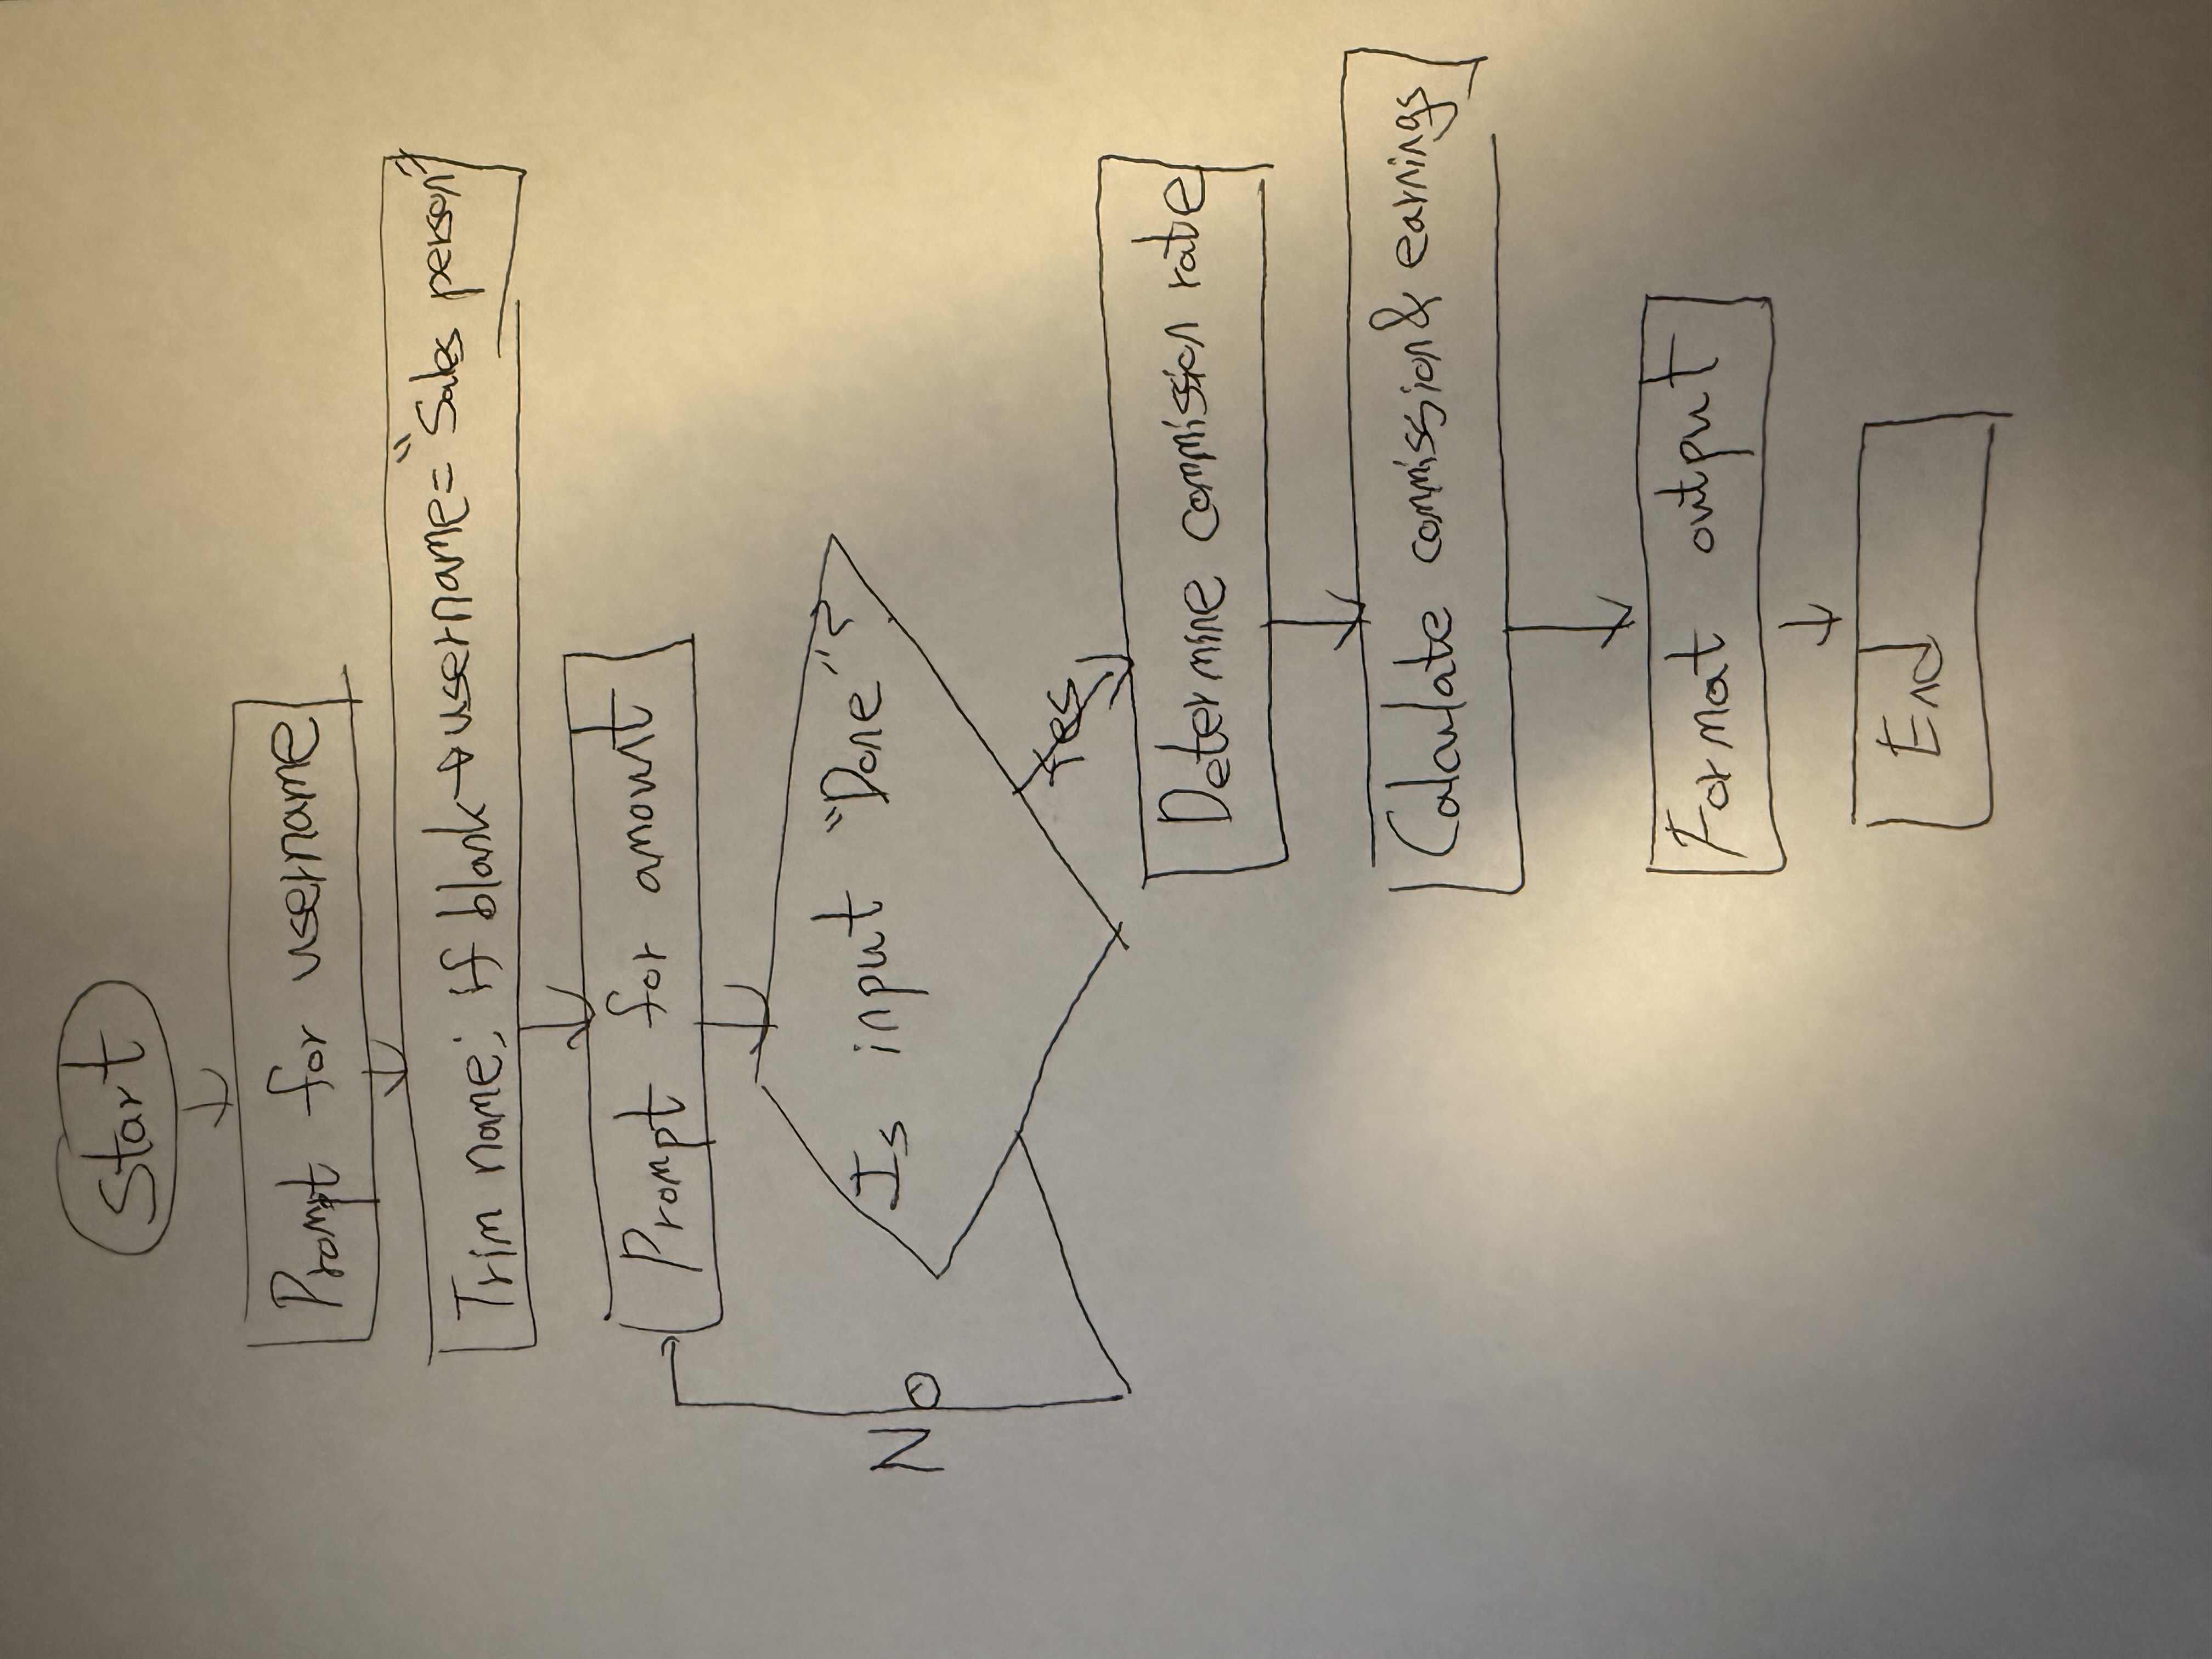 Start
Prompt for username
Trim name; if blank → username = "Sales person"
Prompt for amount
Is input "Done"?
No
Yes
Determine commission rate
Calculate commission & earnings
Format output
End